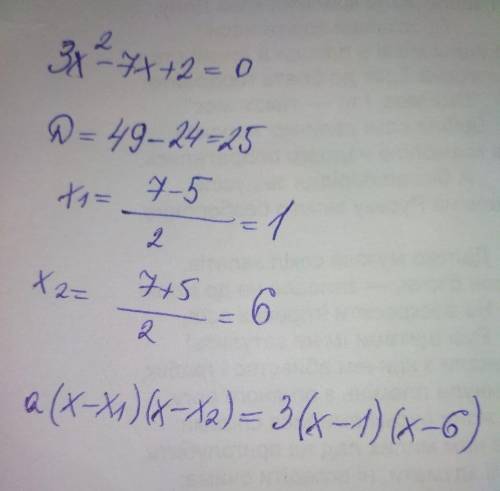 3x² - 7x + 2 = 0
D = 49 - 24 = 25
x₁ = (7 - 5) / 2 = 1
x₂ = (7 + 5) / 2 = 6
a(x - x₁)(x - x₂) = 3(x - 1)(x - 6)